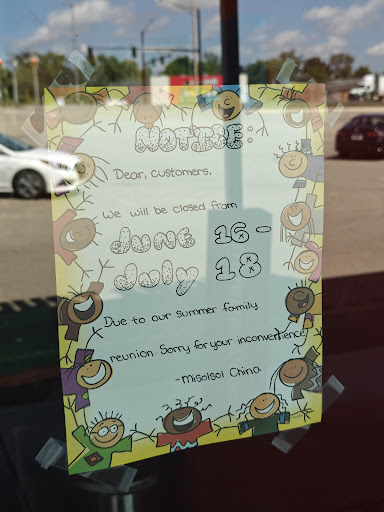 NOTICE:
Dear, customers,
We will be closed from
June 16 -
July 18
Due to our summer family
reunion. Sorry for your inconvenience
-Misolsol China